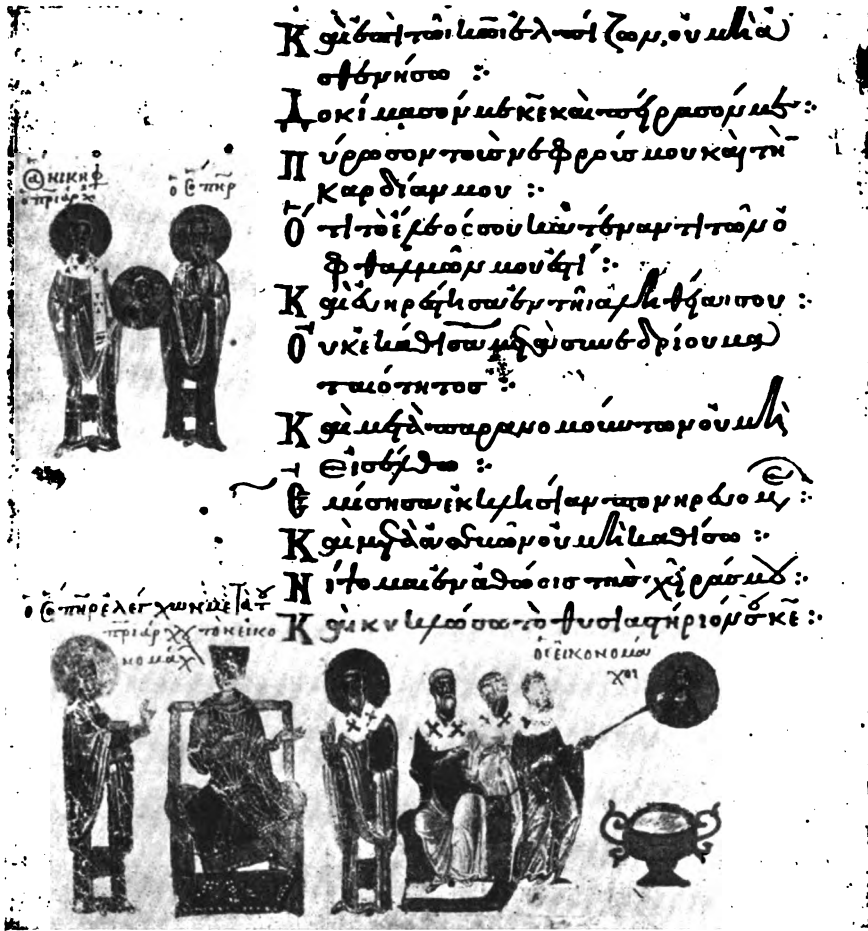 Καὶ ἐπὶ τῶι κ̅ω̅ ἐλπίζων, οὐ μὴ ἀ
σθενήσω :·
Δοκίμασόν με κ̅ε̅ καὶ πείρασόν με :·
Πύρωσον τοὺς νεφρούς μου καὶ τὴν
καρδίαν μου :·
Ὅτι τὸ ἔλεός σου κατέναντι τῶν ὀ
φθαλμῶν μου ἐστί :·
Καὶ εὐηρέστησα ἐν τῆι ἀληθείαι σου :·
Οὐκ ἐκάθισα μετὰ συνεδρίου μα
ταιότητος :·
Καὶ μετὰ παρανομούντων οὐ μὴ
εἰσέλθω :·
Ἐμίσησα ἐκκλησίαν πονηρευομέ :·
Καὶ μετὰ οὐ μὴ καθίσω :·
Νίψομαι ἐν ἀθώοις τὰς χεῖράς μου :·
Καὶ κυκλώσω τὸ θυσιαστήριόν σου κ̅ε̅ :·
ὁ ἅ νικηφ
ὁ πριάρχ
ὁ ὅ πηρ
ὁ ὅ πηρ ἐλέγχων μετὰ τοῦ
πριάρχου τὸν εἰκο
νομάχ
οἱ εἰκονομά
χοι